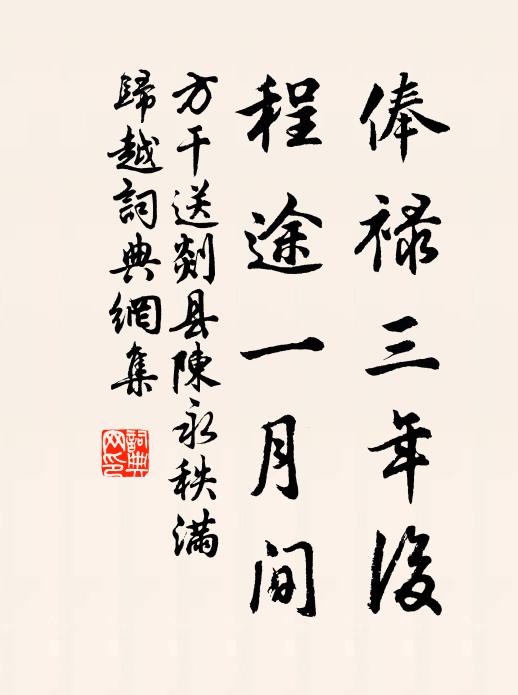 俸祿三年後
程途一月間
方干送剡县陳永秩滿
歸越詞典網集
詞典网印